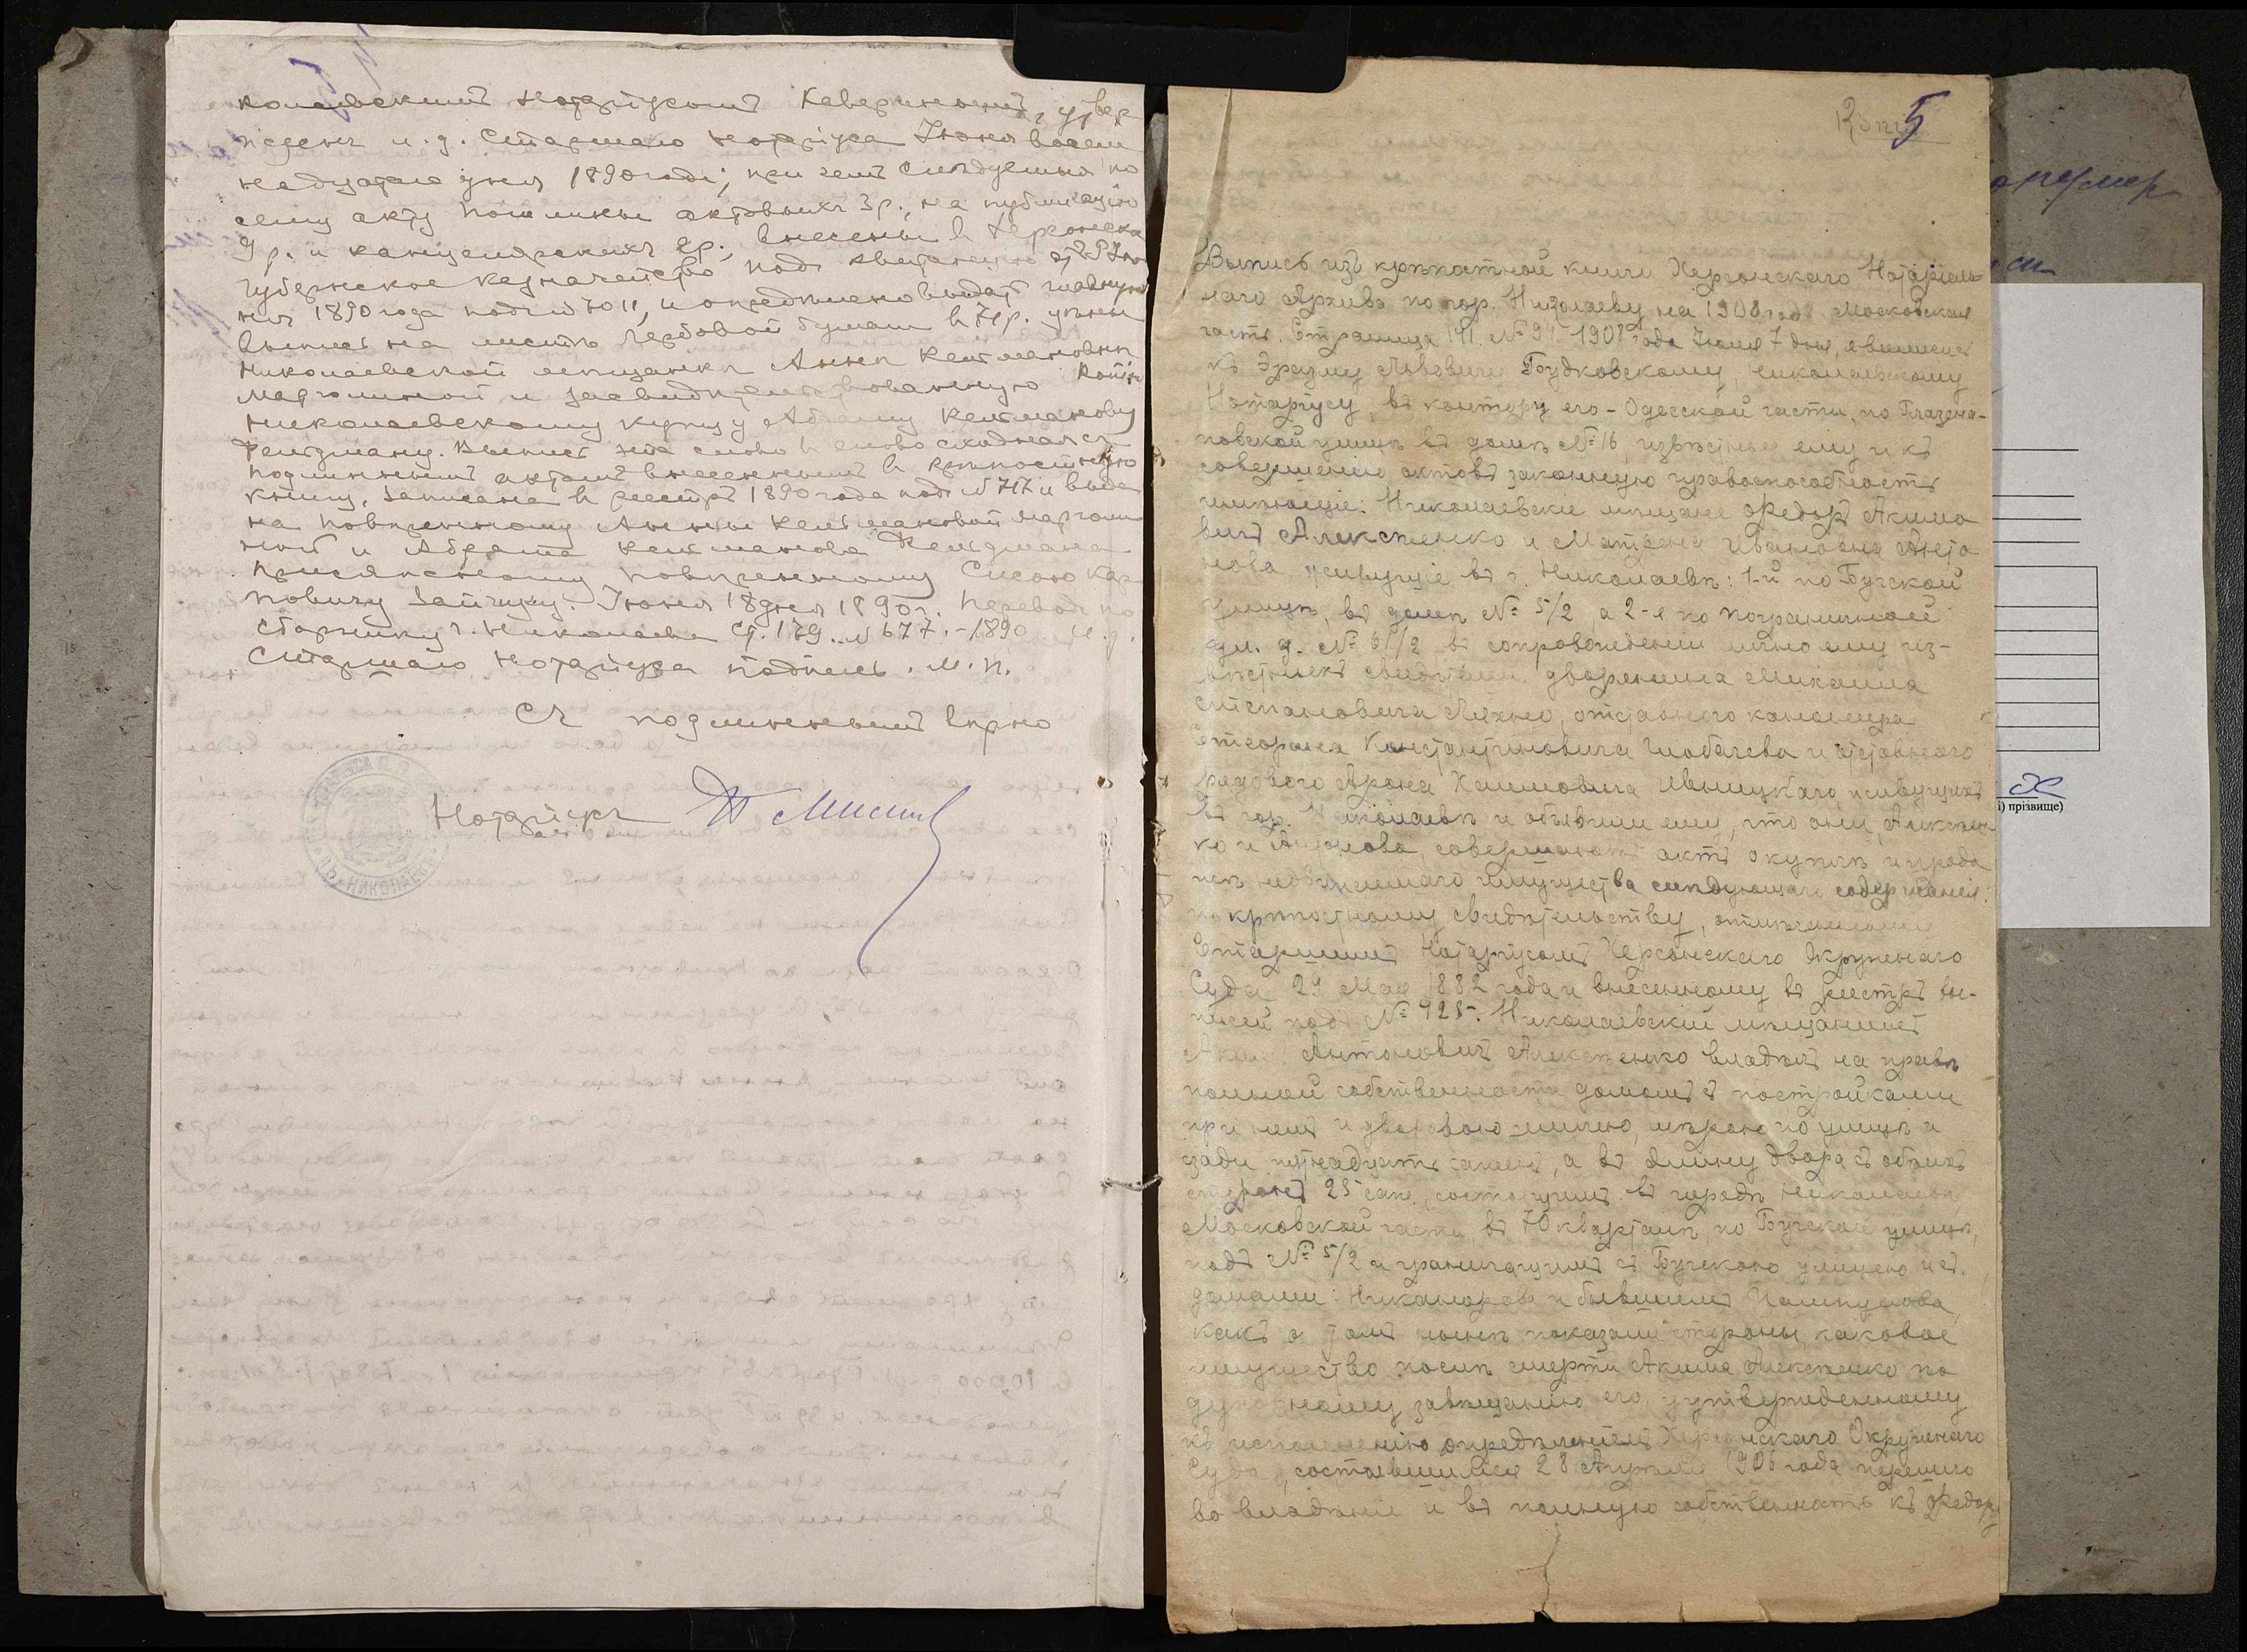 колаевскимъ Нотаріусомъ Каверинымъ, утвер
жденъ и. д. Старшаго Нотаріуса Іюня восем
надцатаго дня 1890 года; при чемъ слѣдуемыя по
сему акту пошлины актовыхъ 3 р., на публикацію
9 р. и канцелярскихъ 2 р., внесены в Херсонское
Губернское Казначейство подъ квитанцію отъ
ня 1890 года под № 7011, и опредѣлено выдать главную
выпись на листѣ гербовой бумаги в цѣны
Николаевской мѣщанкѣ Аннѣ Кельмановнѣ
Марголиной и засвидѣтельствованную копію
николаевскому купцу Абраму Кельманову
Фельдману. Выпись эта слово в слово сходная съ
подлиннымъ актомъ внесеннымъ в крѣпостную
книгу, записана в реестръ 1890 года под № 717 и выда
на повѣренному Анны Кельмановой Марголи
ной и Абрама Кельманова Фельдмана
присяжному повѣренному Сысою Кар
повичу Зайчуку. Іюня 18 дня 1890 г. Перевод по
сборнику г. Николаева ст. 179. № 677. - 1890. И. д.
Старшаго Нотаріуса подпись. М. П.
Съ подлиннымъ вѣрно
Нотаріусъ
НИКОЛАЕВ
Копія
5
Выпись изъ крѣпостной книги Херсонскаго Нотаріаль
наго Архива по гор. Николаеву на 1908 годъ Московская
часть. Страница 141. № 94. 1908 года Іюля 7 дня, явились
къ Эразму Львовичу Будковскому, Николаевскому
Нотаріусу, въ контору его - Одесской части, по Глазена-
повской улицѣ въ домѣ № 16, извѣстные ему и къ
совершенію актовъ законную правоспособность
имѣющіе: Николаевскіе мѣщане Федоръ Акимо
вичъ Алексѣенко и Матрена Ивановна Анто
нова, живущіе въ г. Николаевѣ: 1-й по Бугской
улицѣ, въ домѣ № 5/2, а 2-я по Пограничной
ул. д. № 61/2 въ сопровожденіи лично ему из-
вѣстныхъ свидѣтелей: дворянина Михаила
Степановича Ляхно, отставного канонира
Стефана Константиновича Глобачева и отставного
рядового Арона Хаимовича живущихъ
въ гор. Николаевѣ и объявили ему, что они, Алексѣен-
ко и Антонова, совершаютъ актъ о куплѣ и прода
жѣ недвижимаго имущества слѣдующаго содержанія:
по крѣпостному свидѣтельству, отмѣченному
Старшимъ Нотаріусомъ Херсонскаго Окружнаго
Суда 29 Мая 1882 года и внесенному въ реестръ вы-
писей подъ № 425. Николаевскій мѣщанинъ
Акимъ Антоновичъ Алексѣенко владѣлъ на правѣ
полной собственности домомъ съ постройками
при немъ и дворовою землею, мѣрою по улицѣ и
сзади пятнадцать сажень, а въ длину двора съ обѣихъ
сторонъ 25 саж., состоящимъ въ городѣ Николаевѣ,
Московской части, въ 70 кварталѣ по Бугской улицѣ,
подъ № 5/2 и граничащимъ съ Бугскою улицею и съ
домами: Никанорова и бывшимъ
какъ о томъ нынѣ показали стороны каковое
имущество послѣ смерти Акима Алексѣенко по
духовному завѣщанію его, утвержденному
къ исполненію опредѣленіемъ Херсонскаго Окружнаго
Суда, состоявшимся 28 Апрѣля 1906 года перешло
во владѣніе и въ полную собственность къ Федору
і) прізвище)